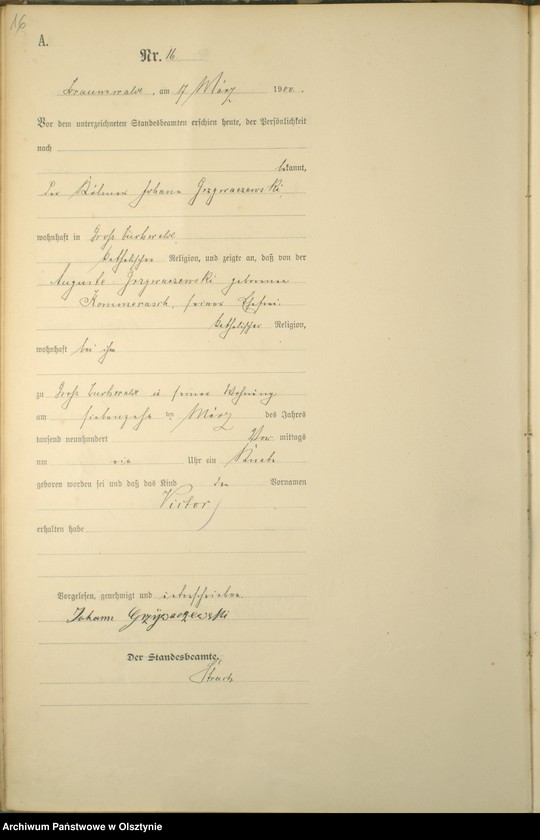 16
A.
Nr. 16
Braunswalde, am 17 März 1900.
Vor dem unterzeichneten Standesbeamten erschien heute, der Persönlichkeit
nach
bekannt,
der Kölmer Johann Grzywaczewski
wohnhaft in Groß Buchwalde
katholischer Religion, und zeigte an, daß von der
Auguste Grzywaczewski geborenen
seiner Ehefrau
katholischer Religion,
wohnhaft bei ihm
zu Groß Buchwalde in seiner Wohnung
am siebenzehnten März des Jahres
tausend neunhundert Vor mittags
um Uhr ein Knabe
geboren worden sei und daß das Kind den Vornamen
Victor
erhalten habe
Vorgelesen, genehmigt und unterschrieben
Johann
Der Standesbeamte.
Archiwum Państwowe w Olsztynie